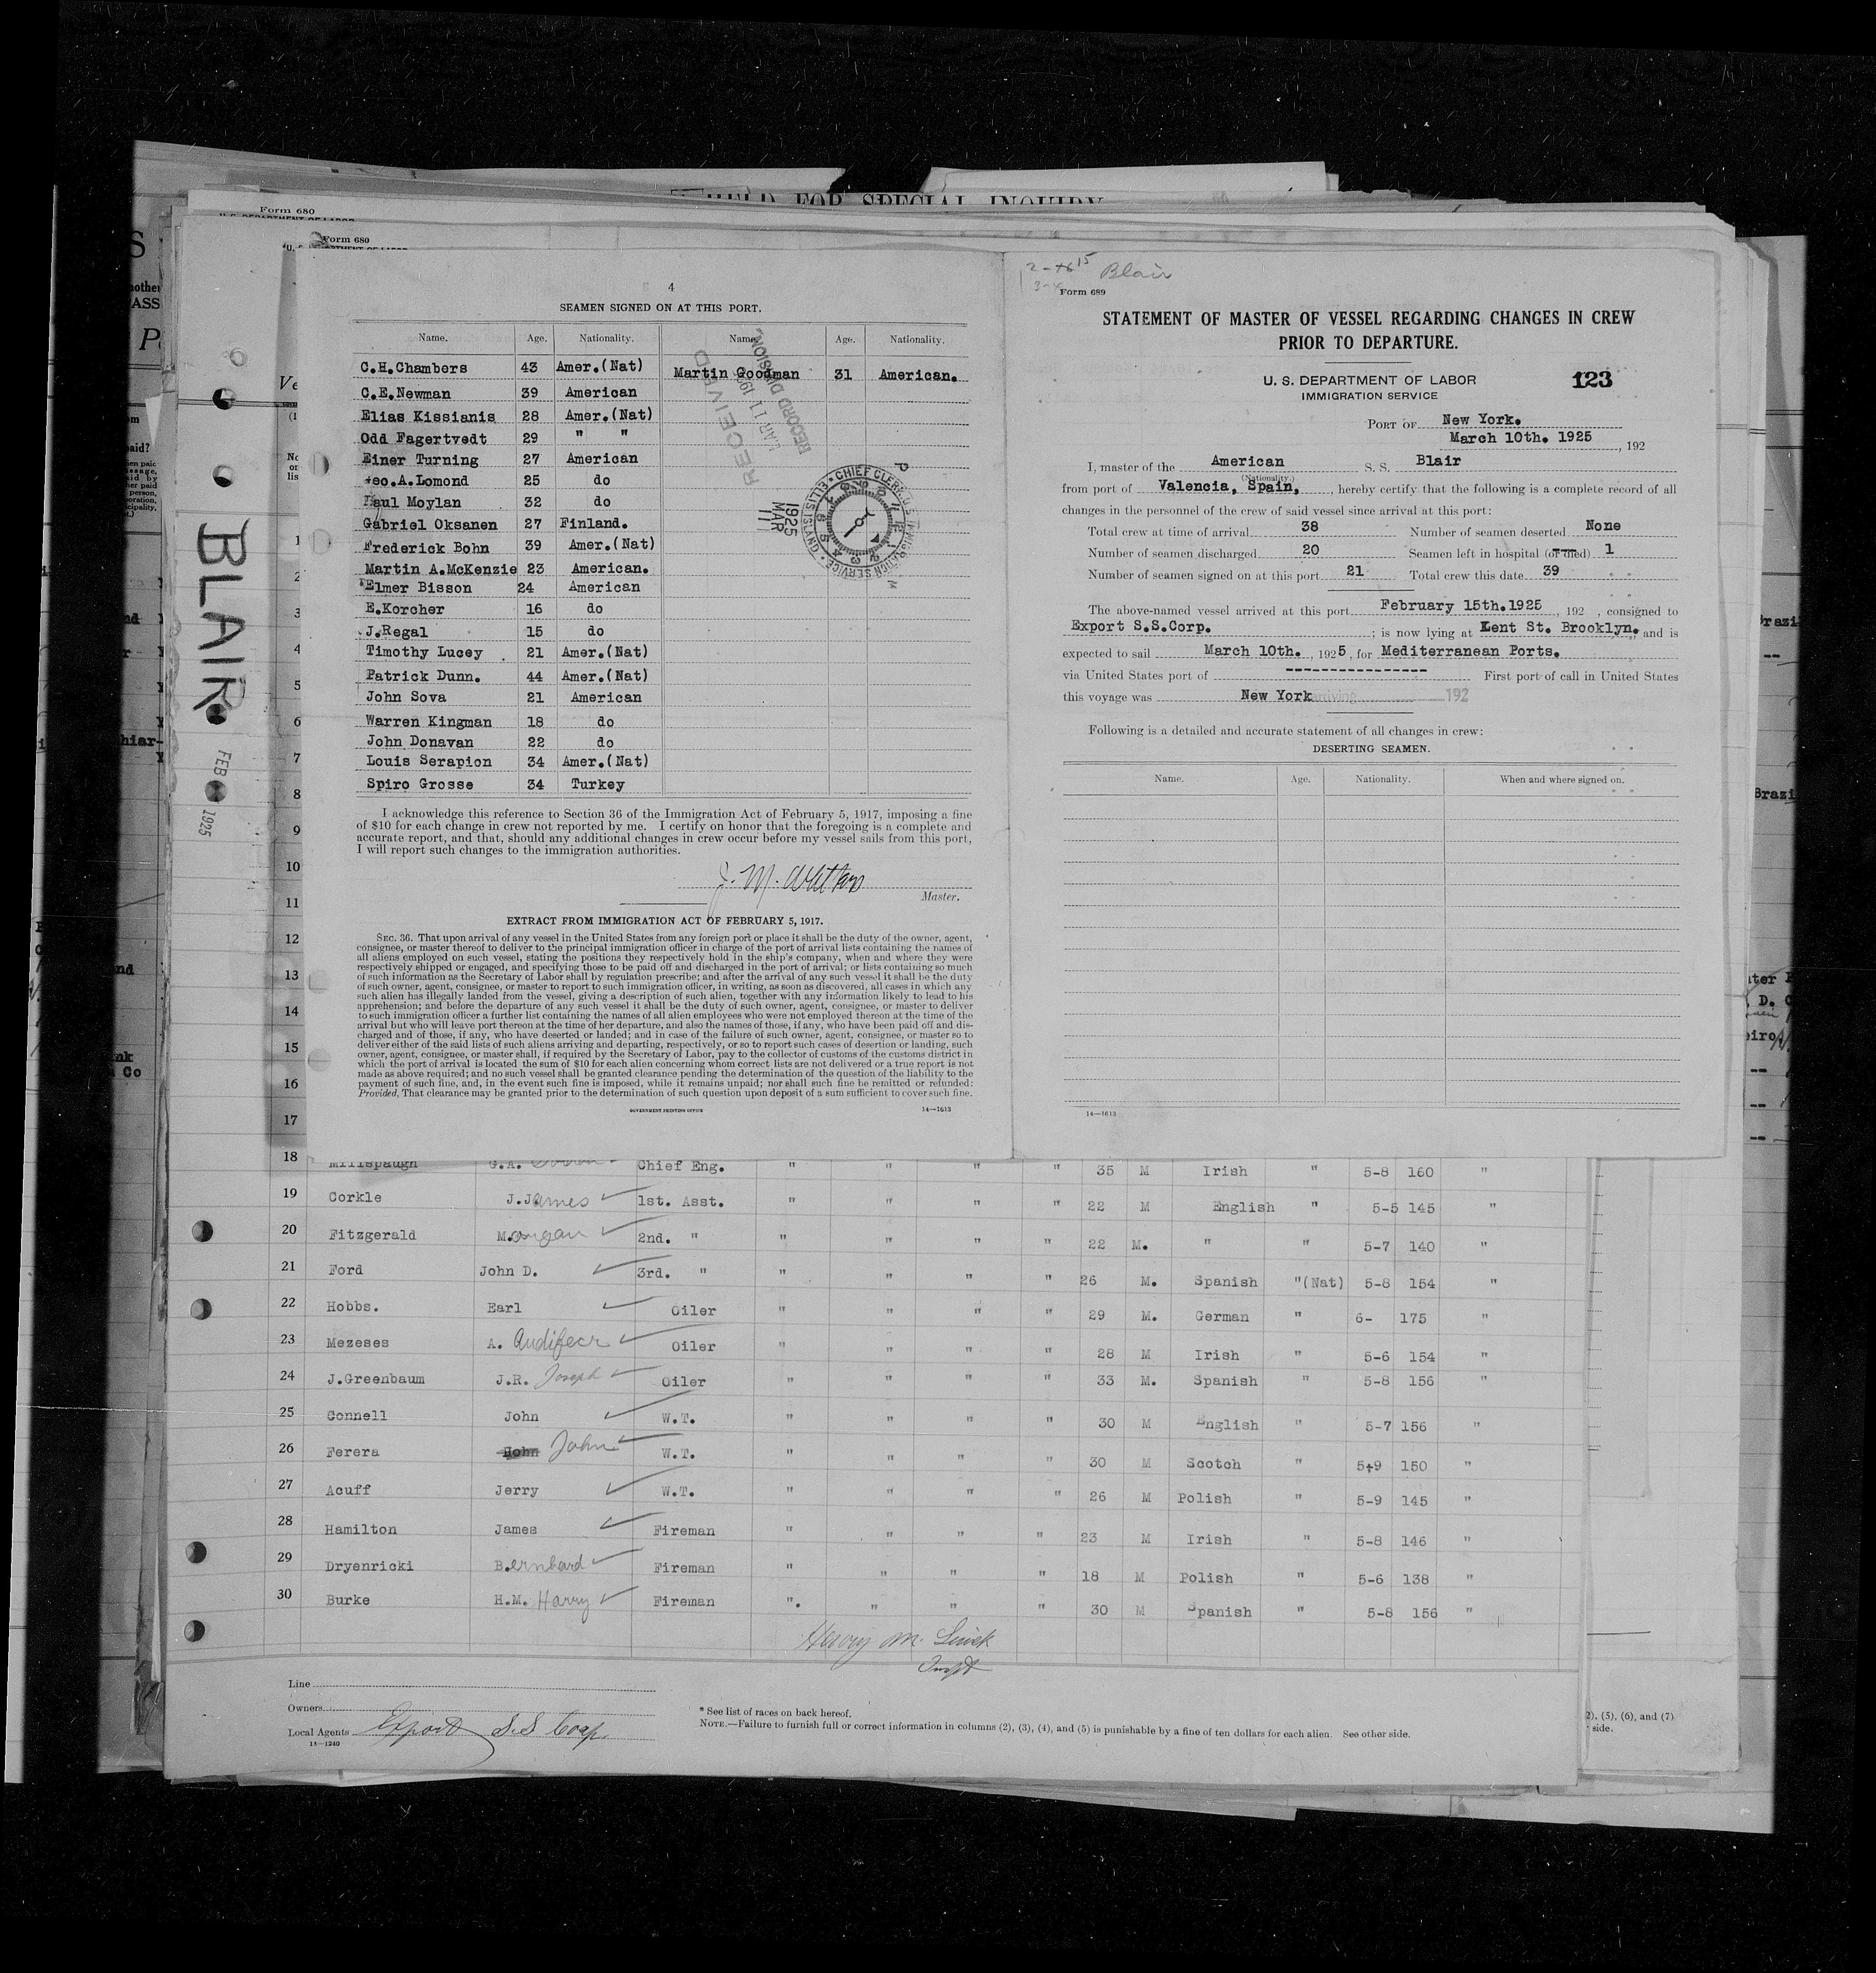 HELD FOR SPECIAL INQUIRY
Form 680
U. S. DEPARTMENT OF LABOR
Form 680
4
SEAMEN SIGNED ON AT THIS PORT.
Name. Age. Nationality. Name. Age. Nationality.
C.H.Chambers 43 Amer.(Nat) Martin Goodman 31 American.
C.E.Newman 39 American
Elias Kissianis 28 Amer.(Nat)
Odd Fagertvedt 29 " "
Einer Turning 27 American
Geo.A.Lomond 25 do
Paul Moylan 32 do
Gabriel Oksanen 27 Finland.
Frederick Bohn 39 Amer.(Nat)
Martin A.McKenzie 23 American.
Elmer Bisson 24 American
E.Korcher 16 do
J.Regal 15 do
Timothy Lucey . 21 Amer.(Nat)
Patrick Dunn. 44 Amer.(Nat)
John Sova 21 American
Warren Kingman 18 do
John Donavan 22 do
Louis Serapion 34 Amer.(Nat)
Spiro Grosse 34 Turkey
RECEIVED
MAR 11 1925
RECORD DIVISION
1925
MAR
11
CHIEF CLERK, U.S. IMMIGRATION SERVICE • ELLIS ISLAND •
I acknowledge this reference to Section 36 of the Immigration Act of February 5, 1917, imposing a fine
of $10 for each change in crew not reported by me. I certify on honor that the foregoing is a complete and
accurate report, and that, should any additional changes in crew occur before my vessel sails from this port,
I will report such changes to the immigration authorities.
J. M.
Master.
EXTRACT FROM IMMIGRATION ACT OF FEBRUARY 5, 1917.
SEC. 36. That upon arrival of any vessel in the United States from any foreign port or place it shall be the duty of the owner, agent,
consignee, or master thereof to deliver to the principal immigration officer in charge of the port of arrival lists containing the names of
all aliens employed on such vessel, stating the positions they respectively hold in the ship's company, when and where they were
respectively shipped or engaged, and specifying those to be paid off and discharged in the port of arrival; or lists containing so much
of such information as the Secretary of Labor shall by regulation prescribe; and after the arrival of any such vessel it shall be the duty
of such owner, agent, consignee, or master to report to such immigration officer, in writing, as soon as discovered, all cases in which any
such alien has illegally landed from the vessel, giving a description of such alien, together with any information likely to lead to his
apprehension; and before the departure of any such vessel it shall be the duty of such owner, agent, consignee, or master to deliver
to such immigration officer a further list containing the names of all alien employees who were not employed thereon at the time of the
arrival but who will leave port thereon at the time of her departure, and also the names of those, if any, who have been paid off and dis-
charged and of those, if any, who have deserted or landed; and in case of the failure of such owner, agent, consignee, or master so to
deliver either of the said lists of such aliens arriving and departing, respectively, or so to report such cases of desertion or landing, such
owner, agent, consignee, or master shall, if required by the Secretary of Labor, pay to the collector of customs of the customs district in
which the port of arrival is located the sum of $10 for each alien concerning whom correct lists are not delivered or a true report is not
made as above required; and no such vessel shall be granted clearance pending the determination of the question of the liability to the
payment of such fine, and, in the event such fine is imposed, while it remains unpaid; nor shall such fine be remitted or refunded:
Provided, That clearance may be granted prior to the determination of such question upon deposit of a sum sufficient to cover such fine.
GOVERNMENT PRINTING OFFICE 14—1613
Blair
Form 689
STATEMENT OF MASTER OF VESSEL REGARDING CHANGES IN CREW
PRIOR TO DEPARTURE.
U. S. DEPARTMENT OF LABOR
IMMIGRATION SERVICE
123
PORT OF New York.
March 10th. 1925, 192
I, master of the American S. S. Blair
(Nationality.)
from port of Valencia, Spain, , hereby certify that the following is a complete record of all
changes in the personnel of the crew of said vessel since arrival at this port:
Total crew at time of arrival 38 Number of seamen deserted None
Number of seamen discharged 20 Seamen left in hospital (or died) 1
Number of seamen signed on at this port 21 Total crew this date 39
The above-named vessel arrived at this port February 15th.1925, 192 , consigned to
Export S.S.Corp. ; is now lying at Kent St. Brooklyn. and is
expected to sail March 10th. , 1925, for Mediterranean Ports.
via United States port of ---------------- First port of call in United States
this voyage was New York arriving 192
Following is a detailed and accurate statement of all changes in crew:
DESERTING SEAMEN.
Name. Age. Nationality. When and where signed on.
14—1613
BLAIR
FEB 1925
1
2
3
4
5
6
7
8
9
10
11
12
13
14
15
16
17
18 Millspaugh G.A. Chief Eng. " " " " 35 M Irish " 5-8 160 "
19 Corkle J.James 1st. Asst. " " " " 22 M English " 5-5 145 "
20 Fitzgerald Morgan 2nd. " " " " " 22 M. " " 5-7 140 "
21 Ford John D. 3rd. " " " " " 26 M. Spanish "(Nat) 5-8 154 "
22 Hobbs. Earl Oiler " " " " 29 M. German " 6- 175 "
23 Mezeses A. Oiler " " " " 28 M Irish " 5-6 154 "
24 J.Greenbaum J.R. Joseph Oiler " " " " 33 M. Spanish " 5-8 156 "
25 Connell John W.T. " " " " 30 M English " 5-7 156 "
26 Ferera John John W.T. " " " " 30 M Scotch " 5-9 150 "
27 Acuff Jerry W.T. " " " " 26 M Polish " 5-9 145 "
28 Hamilton James Fireman " " " " 23 M Irish " 5-8 146 "
29 Dryenricki Bernhard Fireman " " " " 18 M Polish " 5-6 138 "
30 Burke H.M. Harry Fireman ". " " " 30 M Spanish " 5-8 156 "
Henry M.
Inspt
Line
Owners
Local Agents Export S.S Corp.
14—1240
* See list of races on back hereof.
NOTE.—Failure to furnish full or correct information in columns (2), (3), (4), and (5) is punishable by a fine of ten dollars for each alien. See other side.
2), (5), (6), and (7)
side.